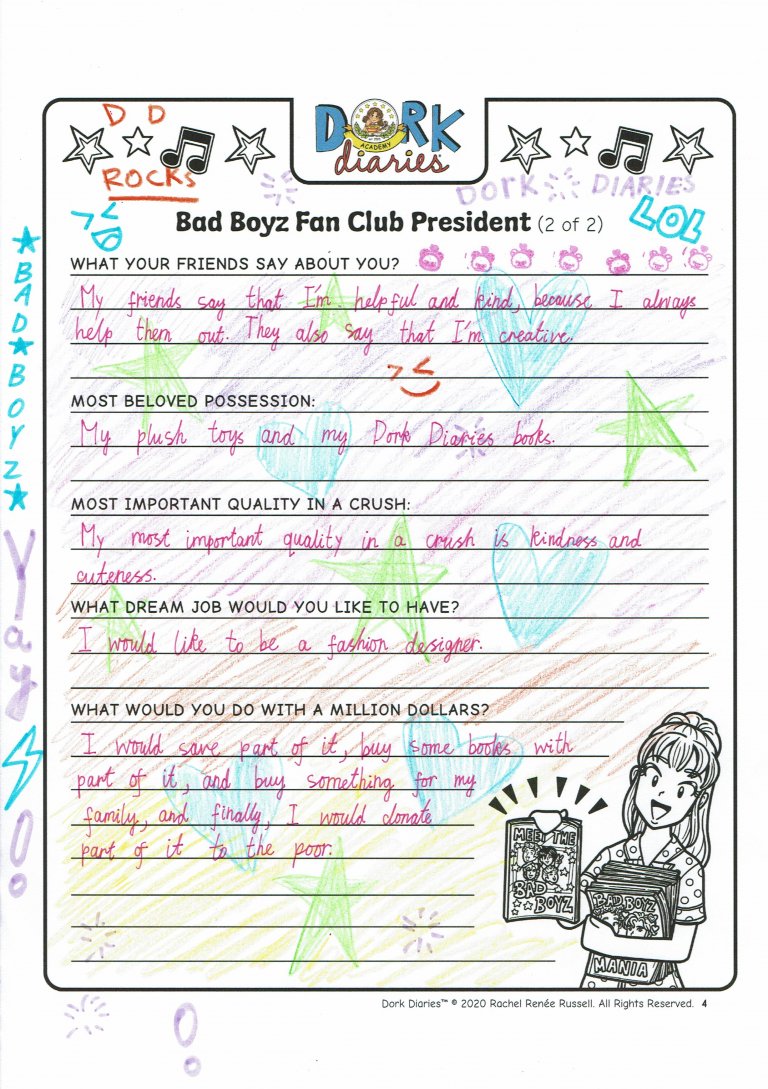 D D
ROCKS
DORK
ACADEMY
diaries
DORK DIARIES
LOL
Bad Boyz Fan Club President (2 of 2)
WHAT YOUR FRIENDS SAY ABOUT YOU?
My friends say that I'm helpful and kind, because I always
help them out. They also say that I'm creative.
MOST BELOVED POSSESSION:
My plush toys and my Dork Diaries books.
MOST IMPORTANT QUALITY IN A CRUSH:
My most important quality in a crush is kindness and
cuteness.
WHAT DREAM JOB WOULD YOU LIKE TO HAVE?
I would like to be a fashion designer.
WHAT WOULD YOU DO WITH A MILLION DOLLARS?
I would save part of it, buy some books with
part of it, and buy something for my
family, and finally, I would donate
part of it to the poor.
BAD BOYZ
Yay!
MEET THE
BAD
BOYZ
BAD BOYZ
MANIA
!
Dork Diaries™ © 2020 Rachel Renée Russell. All Rights Reserved. 4